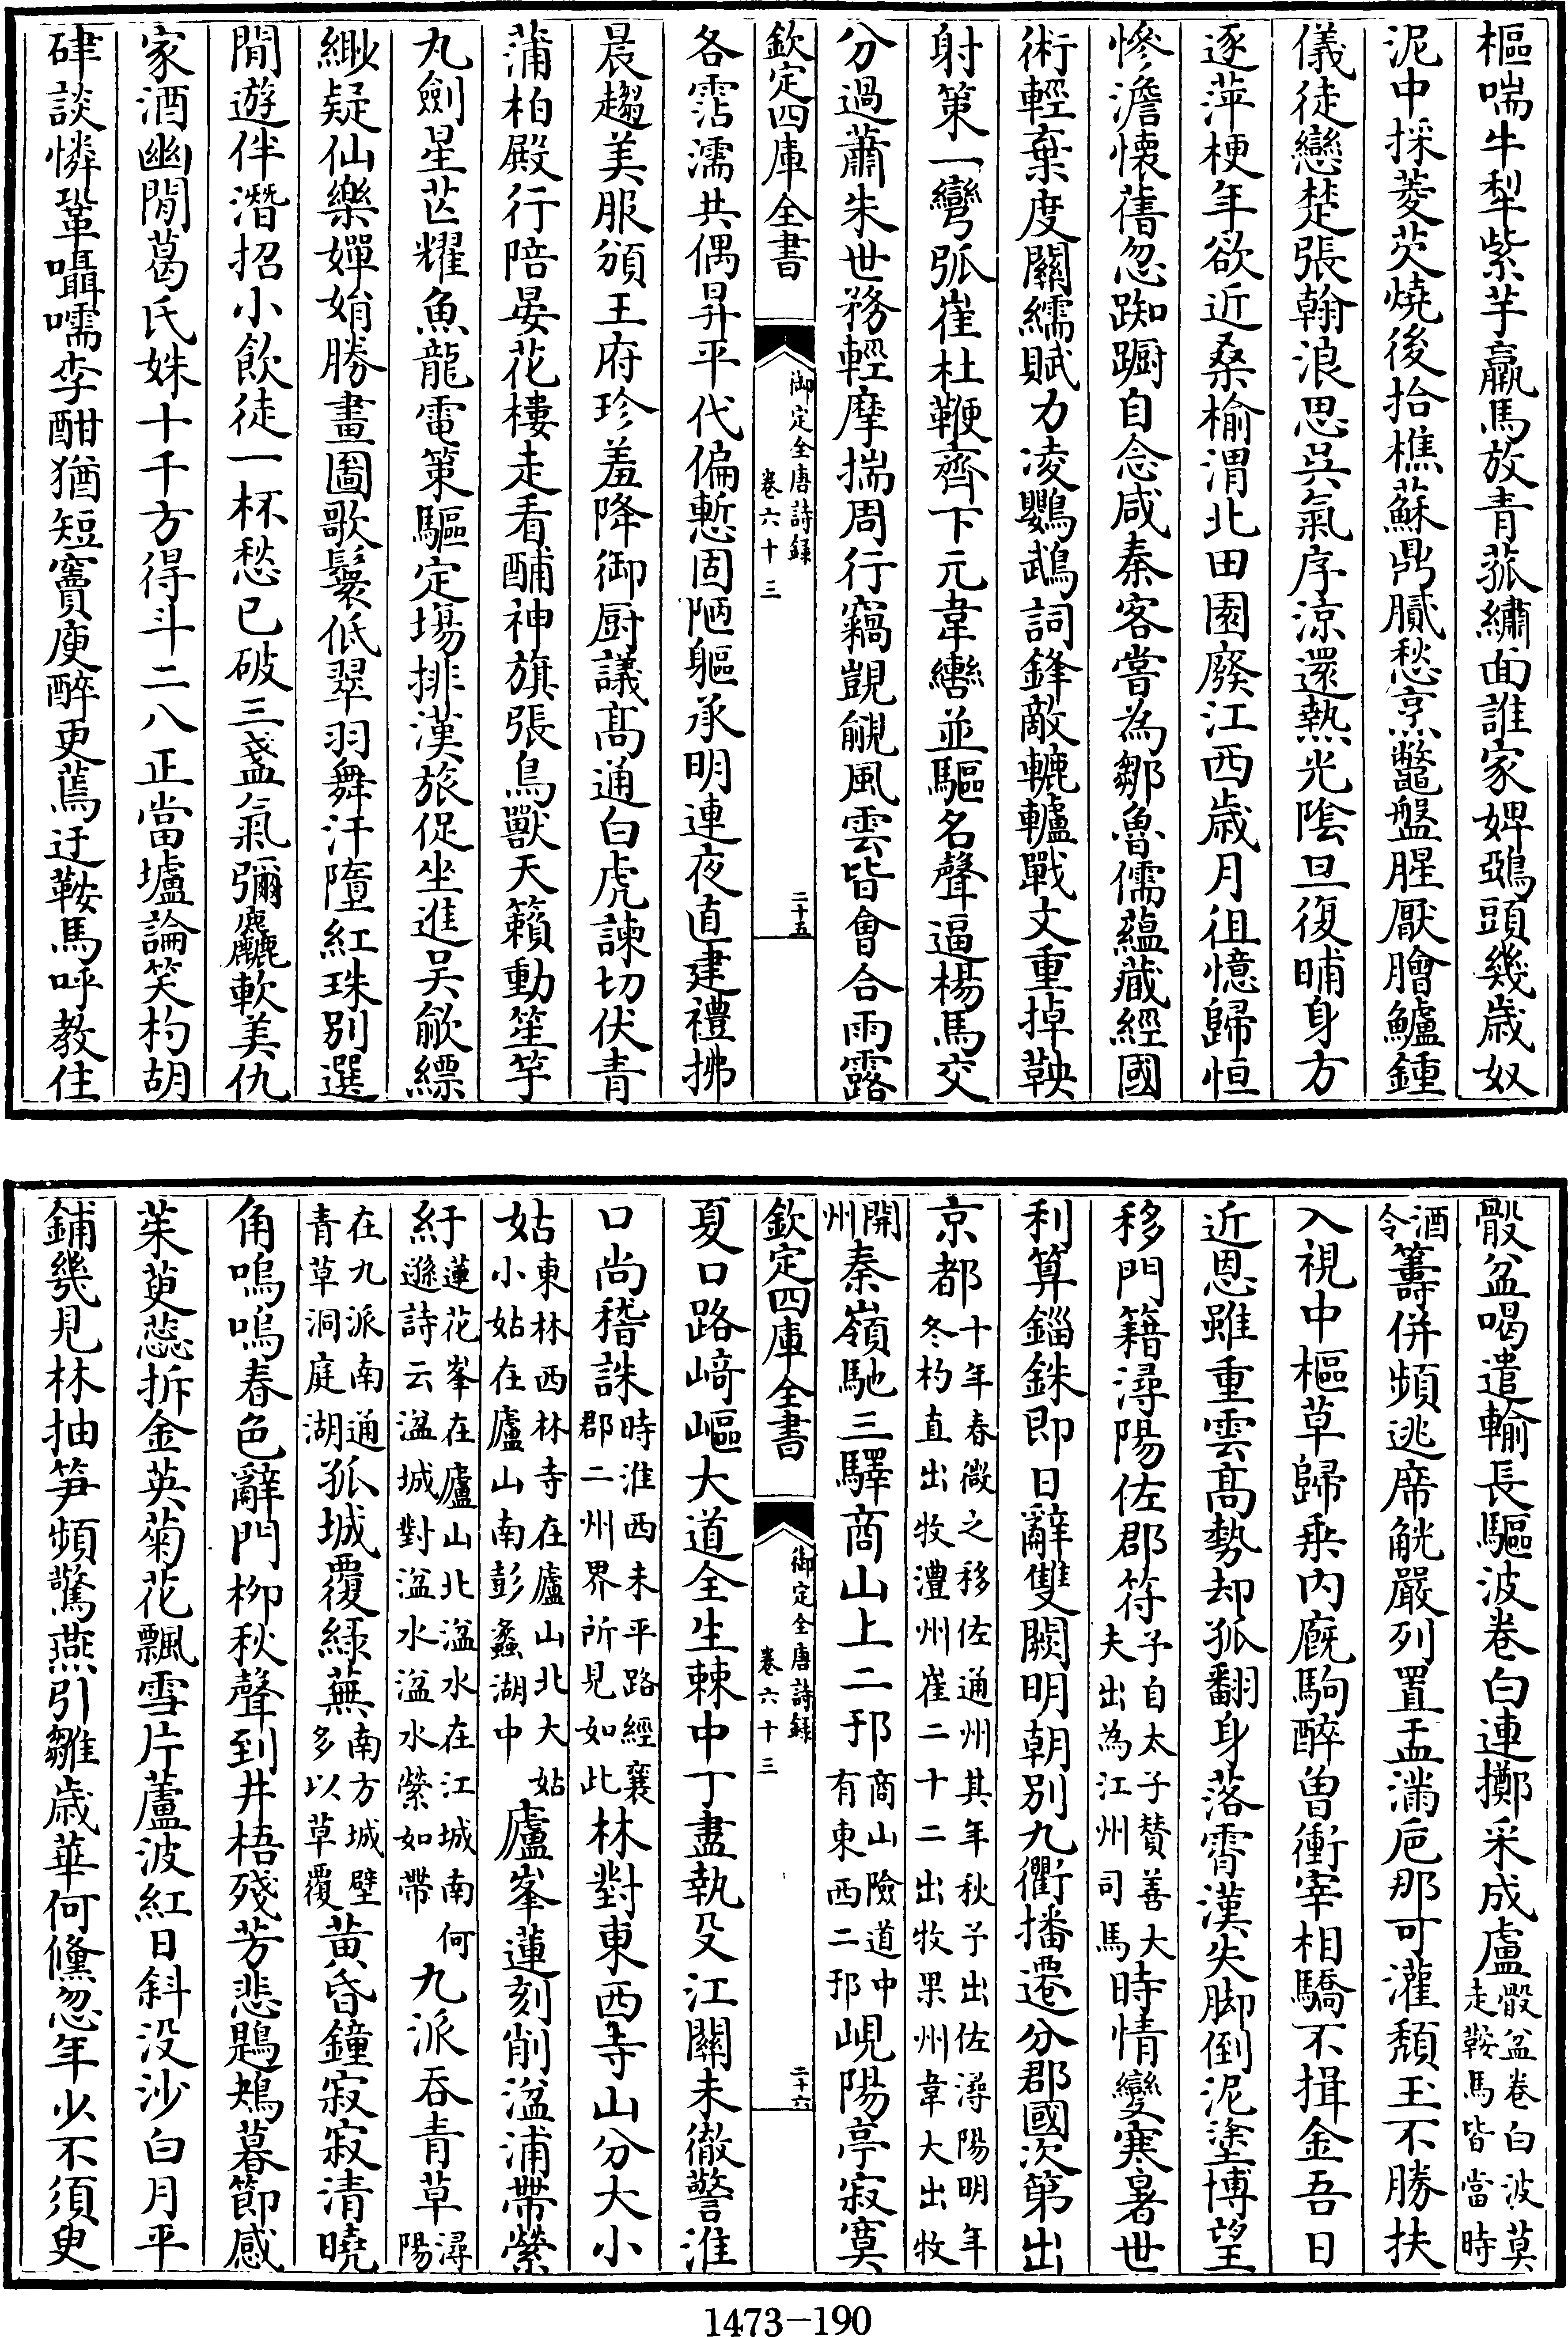 樞喘牛犁紫芋羸馬放青菰繡面誰家婢鵶頭幾歲奴
泥中採菱芡燒後拾樵蘇鼎膩愁烹鼈盤腥厭膾鱸鍾
儀徒戀楚張翰浪思吳氣序涼還熱光陰旦復晡身方
逐萍梗年欲近桑榆渭北田園廢江西歲月徂憶歸恒
慘澹懷舊忽踟躕自念咸秦客嘗為鄒魯儒蘊藏經國
術輕棄度關繻賦力凌鸚鵡詞鋒敵轆轤戰文重掉鞅
射策一彎弧崔杜鞭齊下元韋轡並驅名聲逼楊馬交
分過蕭朱世務輕摩揣周行竊覬覦風雲皆會合雨露
欽定四庫全書
御定全唐詩録
卷六十三
二十五
各霑濡共偶昇平代偏慙固陋軀承明連夜直建禮拂
晨趨美服頒王府珍羞降御厨議髙通白虎諫切伏青
蒲柏殿行陪晏花樓走看酺神旗張鳥獸天籟動笙竽
九劍星芒耀魚龍電策驅定場排漢旅促坐進吴歈縹
緲疑仙樂嬋娟勝畫圖歌鬟低翠羽舞汗墮紅珠别選
閒遊伴潛招小飲徒一杯愁已破三盞氣彌麤軟美仇
家酒幽閒葛氏姝十千方得斗二八正當壚論笑杓胡
硉談憐鞏囁嚅李酣猶短竇庾醉更蔫迂鞍馬呼教住
骰盆喝遣輸長驅波卷白連擲采成盧骰盆卷白波莫走鞍馬皆當時
酒令籌併頻逃席觥嚴列置盂滿巵那可灌頽玉不勝扶
入視中樞草歸乘内廐駒醉曽衝宰相驕不揖金吾日
近恩雖重雲髙勢却孤翻身落霄漢失脚倒泥塗博望
移門籍潯陽佐郡符予自太子贊善大夫出為江州司馬時情變寒暑世
利算錙銖即日辭雙闕明朝别九衢播遷分郡國次第出
京都十年春微之移佐通州其年秋予出佐潯陽明年冬杓直出牧澧州崔二十二出牧果州韋大出牧
開州秦嶺馳三驛商山上二邘商山險道中有東西二邘峴陽亭寂寞
欽定四庫全書
御定全唐詩録
卷六十三
二十六
夏口路﨑嶇大道全生棘中丁盡執殳江關未徹警淮
口尚稽誅時淮西未平路經襄郡二州界所見如此林對東西寺山分大小
姑東林西林寺在廬山北大姑小姑在廬山南彭蠡湖中廬峯蓮刻削湓浦帶縈
紆蓮花峯在廬山北湓水在江城南何遜詩云湓城對湓水湓水縈如帶九派吞青草潯陽
在九派南通青草洞庭湖孤城覆緑蕪南方城壁多以草覆黄昏鐘寂寂清曉
角嗚嗚春色辭門柳秋聲到井梧殘芳悲鶗鴃暮節感
茱萸蕊拆金英菊花飄雪片蘆波紅日斜没沙白月平
鋪幾見林抽筍頻驚燕引雛歲華何儵忽年少不須臾
1473—190